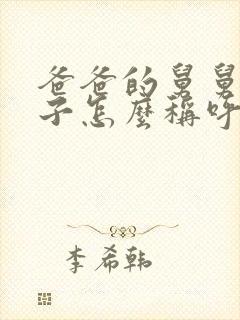 爸爸的舅舅
子怎麼稱呼
李希韩